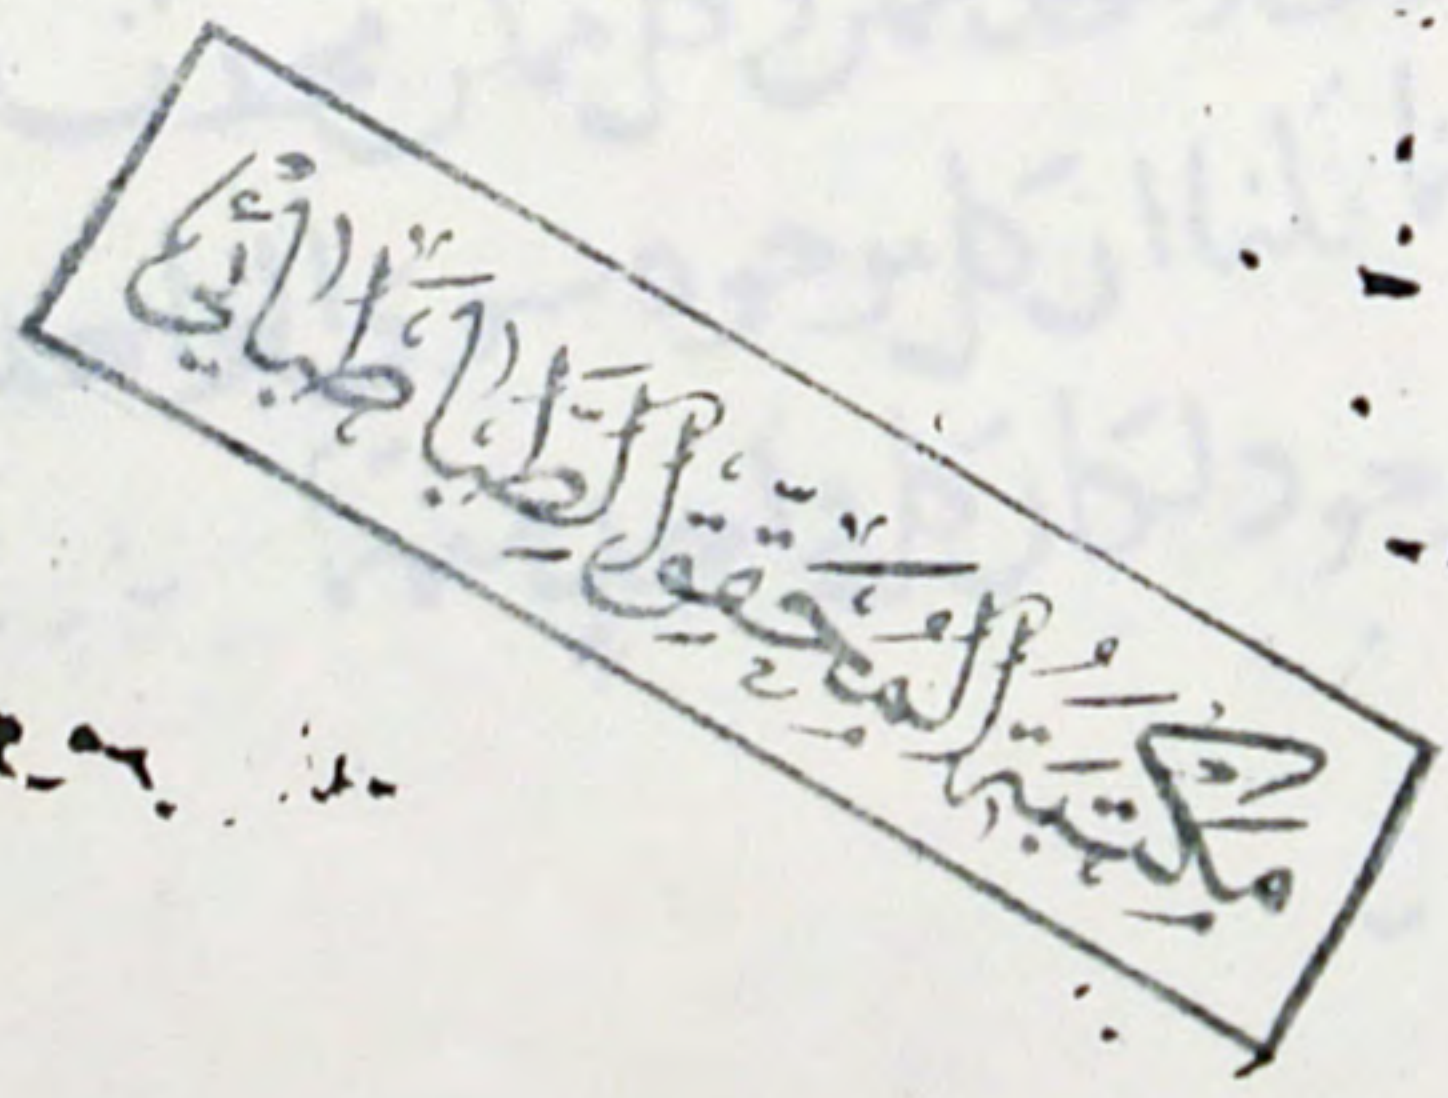 مَكْتَبَةُ الْمُحَقِّقِ الطَّبَاطَبَائِي